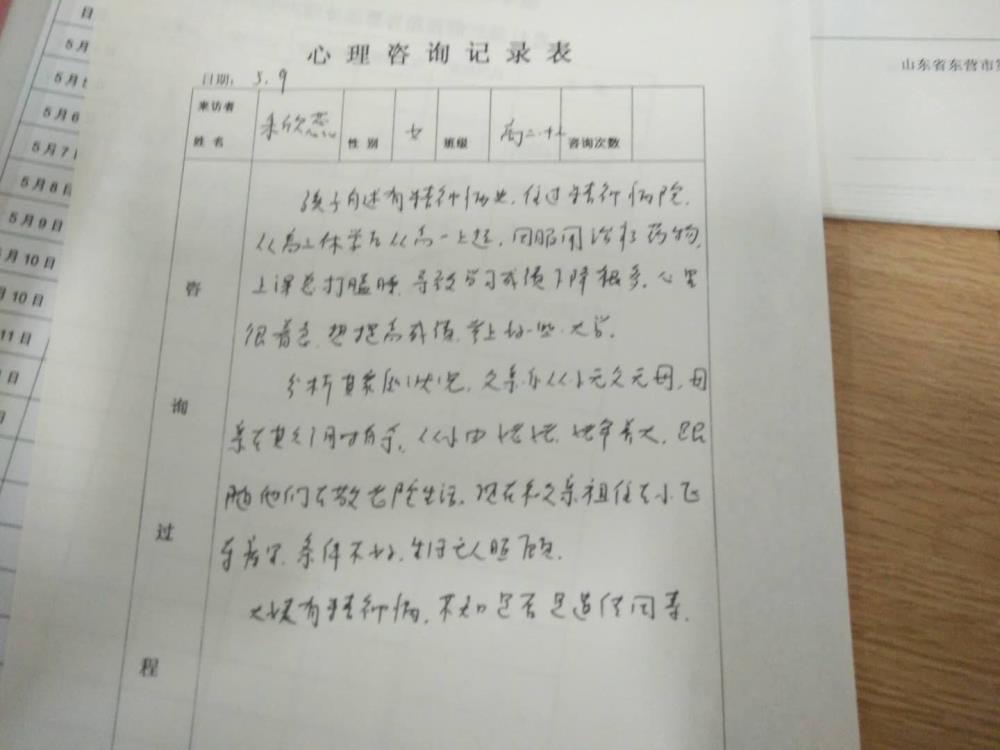 日
5月
5月5
5月6
5月7
5月8日
5月9日
月10日
月10日
11日
日
山东省东营市
心理咨询记录表
日期: 5.9
来访者
姓名
性别 女 班级 高二. 咨询次数
咨询过程
孩子自述有精神病史,住过精神病院,
从高二休学后从高一上起,因服用治疗药物,
上课总打瞌睡,导致学习成绩下降很多,心里
很着急,想提高成绩,考上好一些大学。
分析其家庭状况,父亲从小无父无母,母
亲在其 月时自杀,从小由姥姥、姥爷养大,且跟
随他们在敬老院生活,现在和父亲租住在小飞
条件不好,生活无人照顾。
大姨有精神病,不知是否是遗传因素.